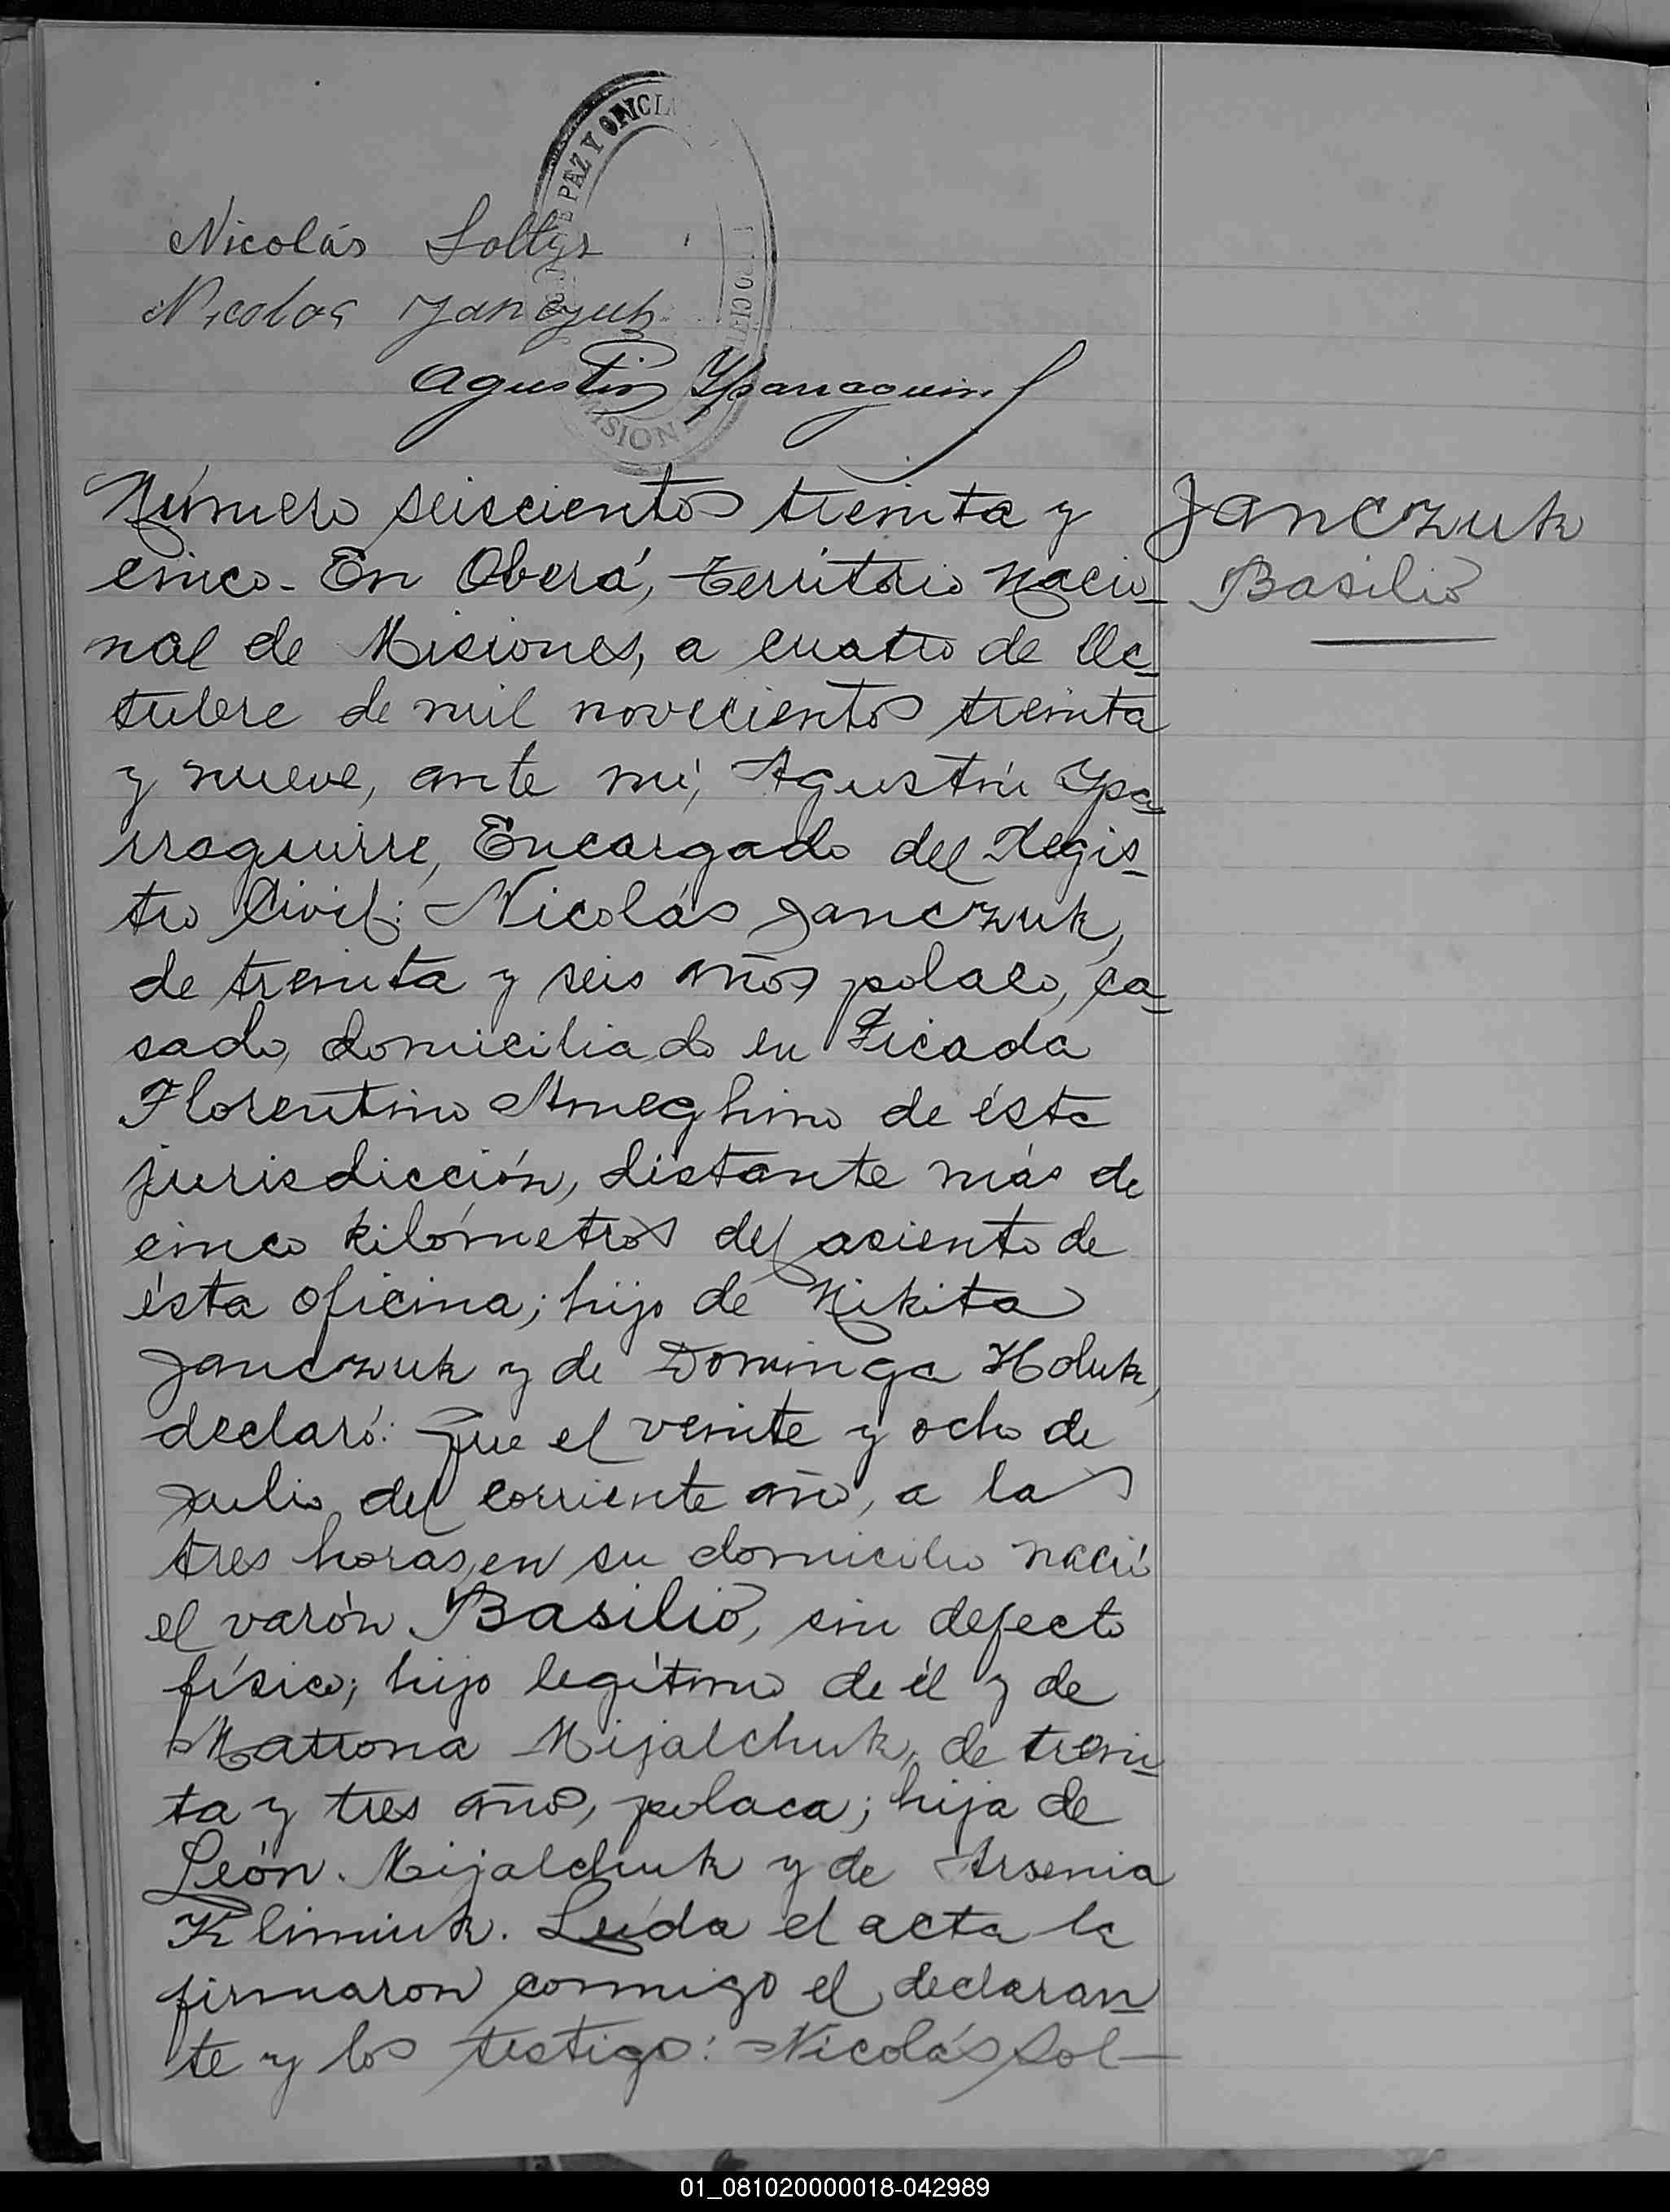 PAZ Y OFICI
MISION
Nicolás Soltys
Nicolas Janczuk
Agustín Yparraguirre
Número seiscientos treinta y
cinco. En Oberá, territorio Nacio-
nal de Misiones, a cuatro de Oc-
tubre de mil novecientos treinta
y nueve, ante mí, Agustín Ypa-
rraguirre, Encargado del Regis-
tro Civil: Nicolás Janczuk,
de treinta y seis años polaco, ca-
sado, domiciliado en Picada
Florentino Ameghino de ésta
jurisdicción, distante más de
cinco kilómetros del asiento de
ésta oficina; hijo de Nikita
Janczuk y de Dominga Holuk,
declaró: Que el veinte y ocho de
Julio del corriente año, a las
tres horas, en su domicilio nació
el varón Basilio, sin defecto
físico; hijo legítimo de él y de
Matrona Mijalchuk, de trein-
ta y tres años, polaca; hija de
León Mijalchuk y de Arsenia
Klimiuk. Leída el acta la
firmaron conmigo el declaran-
te y los testigos: Nicolás Sol-
Janczuk
Basilio
01_081020000018-042989